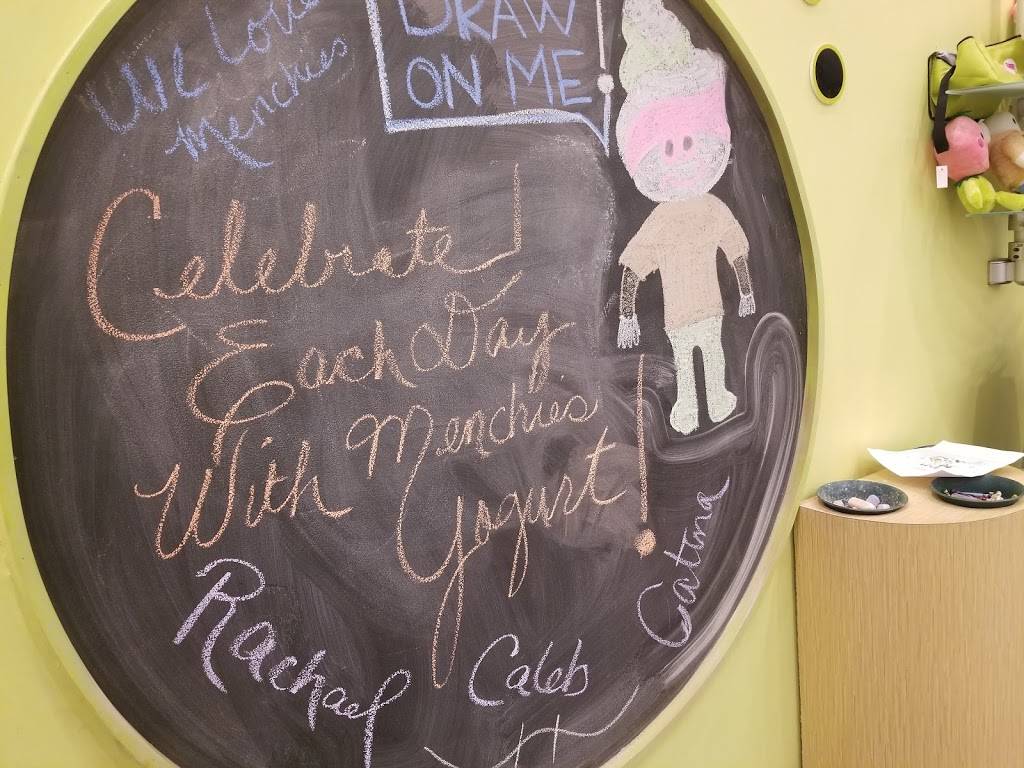 We Love
Menchies
DRAW
ON ME
Celebrate
Each Day
With Menchies
Yogurt!
Rachael
Caleb
Catina